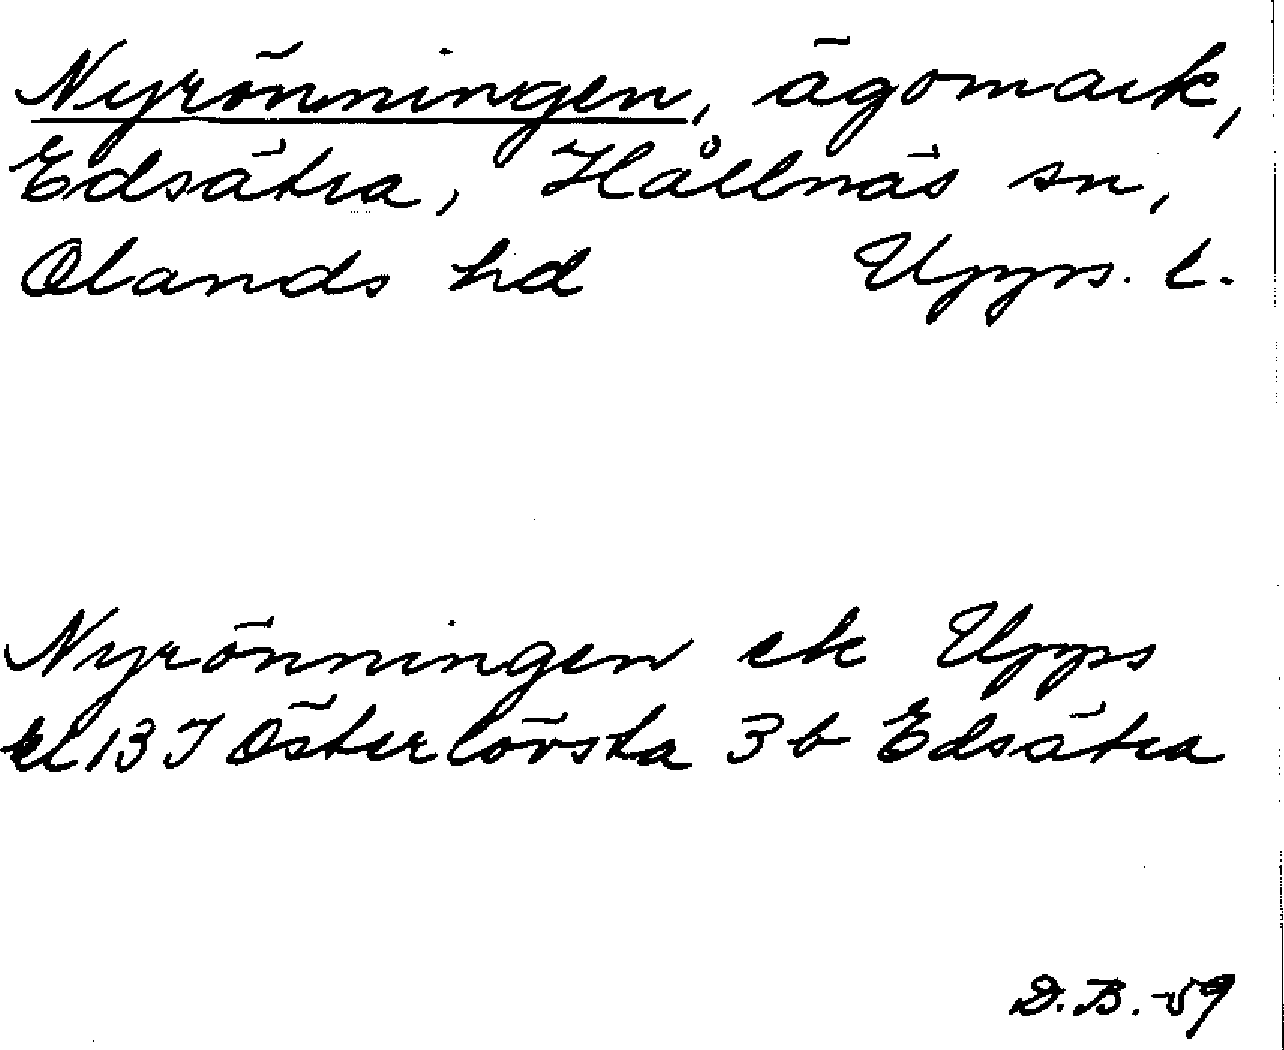 Nyrönningen, ägomark,
Edsätra, Hållnäs sn,
Olands hd Upps. l.
Nyrönningen ek Upps
bl 13 I Österlövsta 3 b Edsätra
D.B. -59